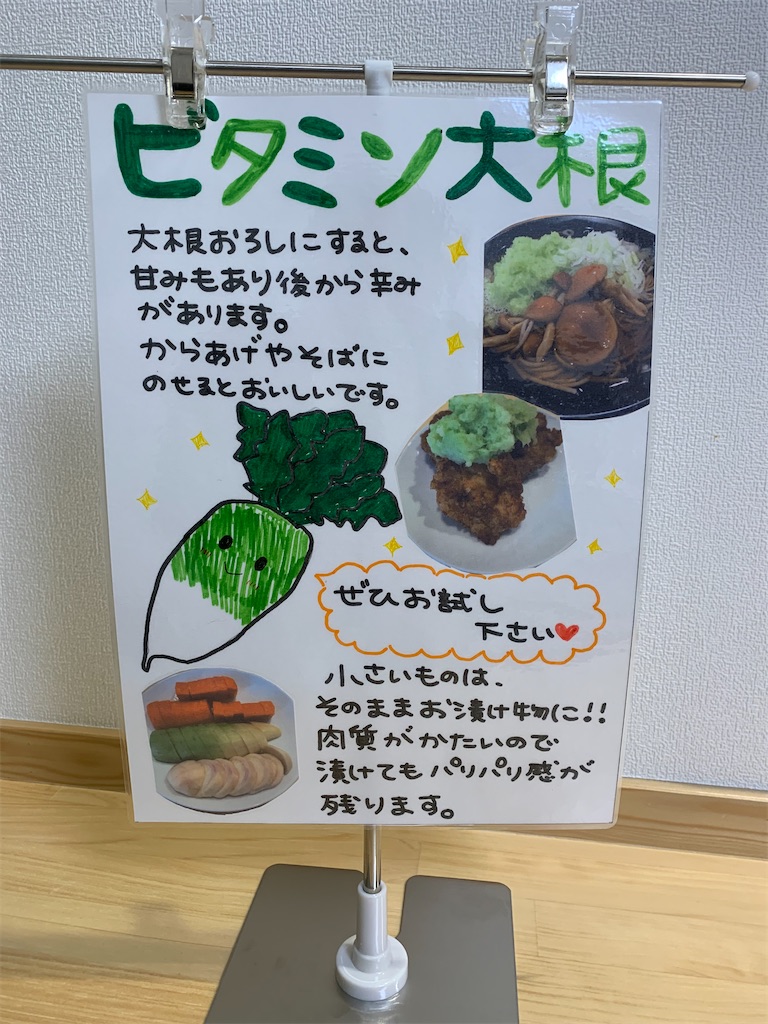 ビタミン大根
大根おろしにすると、
甘みもあり後から辛み
があります。
からあげやそばに
のせるとおいしいです。
ぜひお試し
下さい
小さいものは、
そのままお漬け物に!!
肉質がかたいので
漬けてもパリパリ感が
残ります。